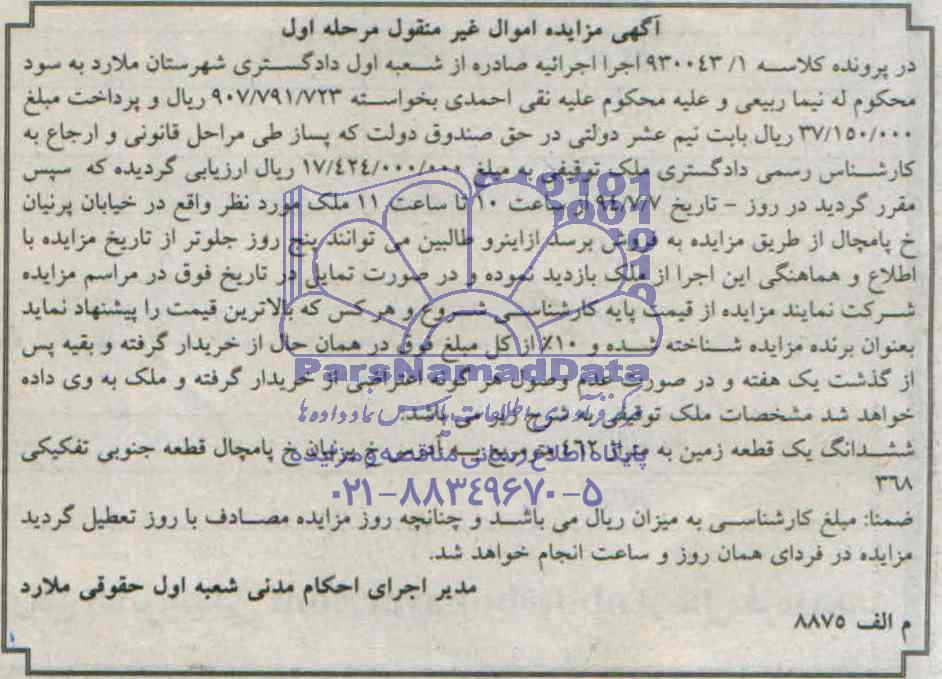 آگهی مزایده اموال غیر منقول مرحله اول
در پرونده کلاسه ۹۳۰۰۴۳/۱ اجرا اجرائیه صادره از شعبه اول دادگستری شهرستان ملارد به سود
محکوم له نیما ربیعی و علیه محکوم علیه نقی احمدی بخواسته ۹۰۷/۷۹۱/۷۲۳ ریال و پرداخت مبلغ
۳۷/۱۵۰/۰۰۰ ریال بابت نیم عشر دولتی در حق صندوق دولت که پساز طی مراحل قانونی و ارجاع به
کارشناس رسمی دادگستری ملک توقیفی به مبلغ ۱۷/۴۲۴/۰۰۰/۰۰۰ ریال ارزیابی گردیده که سپس
مقرر گردید در روز - تاریخ ۹٤/۷/۷ از ساعت ۱۰ تا ساعت ۱۱ ملک مورد نظر واقع در خیابان پرنیان
خ پامچال از طریق مزایده به فروش برسد ازاینرو طالبین می توانند پنج روز جلوتر از تاریخ مزایده با
اطلاع و هماهنگی این اجرا از ملک بازدید نموده و در صورت تمایل در تاریخ فوق در مراسم مزایده
شرکت نمایند مزایده از قیمت پایه کارشناسی شروع و هر کس که بالاترین قیمت را پیشنهاد نماید
بعنوان برنده مزایده شناخته شده و ۱۰٪ از کل مبلغ فوق در همان حال از خریدار گرفته و بقیه پس
از گذشت یک هفته و در صورت عدم وصول هر گونه اعتراضی از خریدار گرفته و ملک به وی داده
خواهد شد مشخصات ملک توقیفی به شرح زیر می باشد.
ششدانگ یک قطعه زمین به متراژ ٤٦۲ مترمربع به آدرس خ پرنیان خ پامچال قطعه جنوبی تفکیکی
۳٦۸
ضمنا: مبلغ کارشناسی به میزان ریال می باشد و چنانچه روز مزایده مصادف با روز تعطیل گردید
مزایده در فردای همان روز و ساعت انجام خواهد شد.
مدیر اجرای احکام مدنی شعبه اول حقوقی ملارد
م الف ۸۸۷۵
ParsNamadData
گروه فن آوری اطلاعات پارس نماد داده ها
پایگاه اطلاع رسانی مناقصه و مزایده
۰۲۱-۸۸۳۴۹۶۷۰-۵